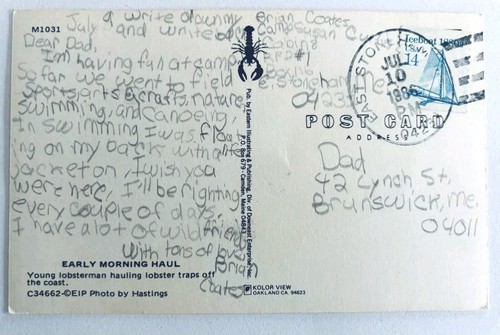 M1031
July 9 write
Brian Coates
Camp Susan Curtis
Dear Dad,
I'm having fun at camp
So far we went to field
Sports, arts & crafts, nature,
swimming, and canoeing.
In swimming I was float
ing on my back with a life
jacket on I wish you
were here, I'll be righting
every couple of days.
I have a lot of wild friends
With tons of love,
Brian
Coates
RFD #1
E. Stoneham Me.
04231
EARLY MORNING HAUL
Young lobsterman hauling lobster traps off
the coast.
C34662-©EIP Photo by Hastings
Pub. by Eastern Illustrating & Publishing, Div. of Downeast Enterprise, Inc.
P.O. Box 679 - Camden, Maine 04843
KOLOR VIEW
OAKLAND CA. 94623
EAST STONEHAM
JUL
10
PM
Iceboat 1880s
USA
14
POST CARD
ADDRESS
Dad
42 Lynch St.
Brunswick, Me.
04011